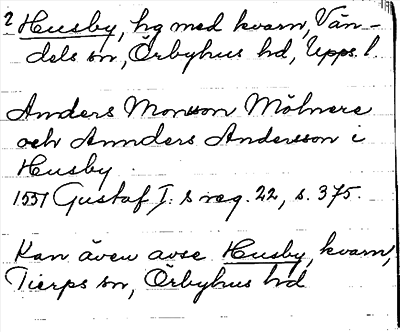 2 Husby, hg med kvarn, Vän-
dels sn, Örbyhus hd, Upps. l.
Anders Monsson Mölnere
och Annders Andersson i
Husby.
1551 Gustaf I:s reg. 22, s. 375.
Kan även avse Husby, kvarn,
Tierps sn, Örbyhus hd